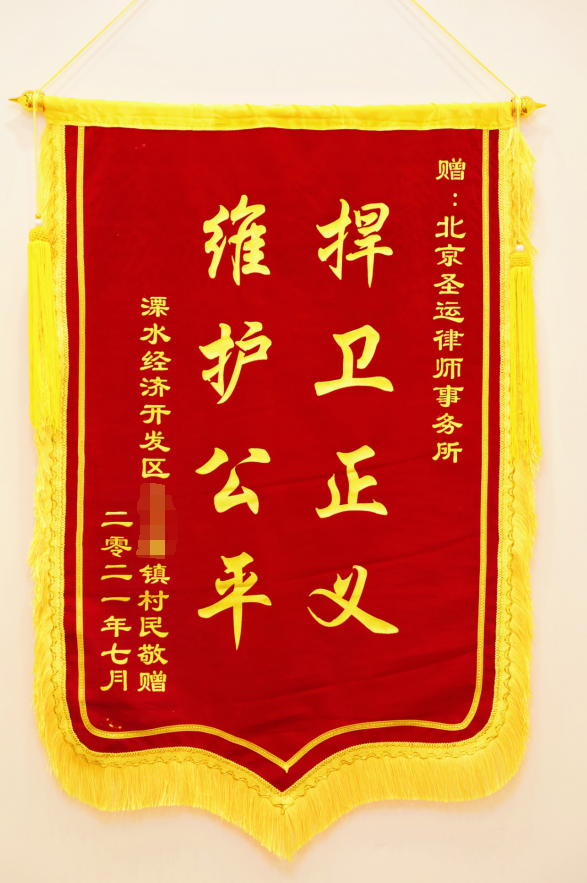 赠：北京圣运律师事务所
捍卫正义
维护公平
溧水经济开发区镇村民敬赠
二零二一年七月